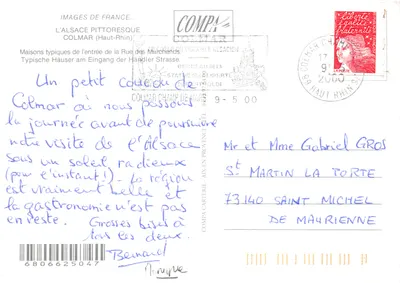 IMAGES DE FRANCE
L'ALSACE PITTORESQUE
COLMAR (Haut-Rhin)
Maisons typiques de l'entrée de la Rue des Marchands
Typische Häuser am Eingang der Händler Strasse
COMPA
COLMAR
9-5.00
2000
HAUT RHIN
Un petit coucou de
Colmar où nous passons
la journée avant de poursuivre
notre visite de l'Alsace
sous un soleil radieux
(pour l'instant!). La région
est vraiment belle et
la gastronomie n'est pas
en reste.
Grosses bises à
tous les deux.
Bernard
6806625047
Mr et Mme Gabriel GROS
St MARTIN LA PORTE
73140 SAINT MICHEL
DE MAURIENNE